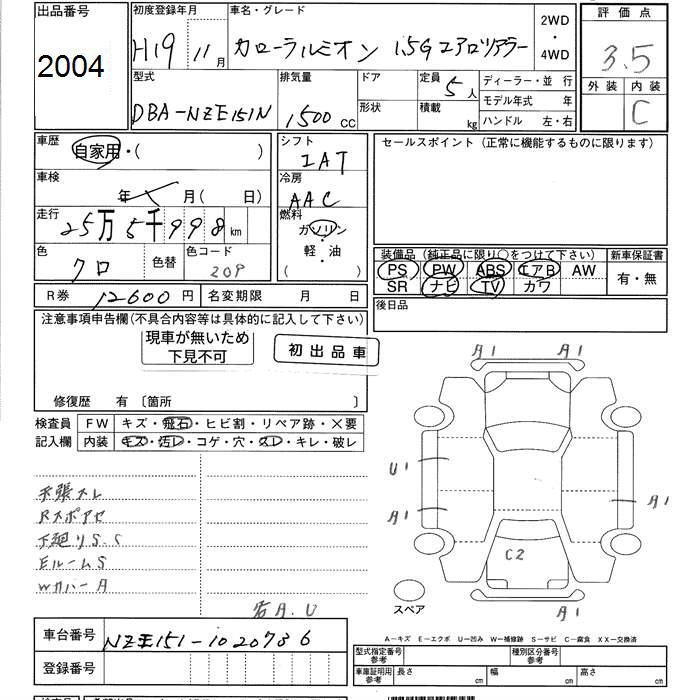 出品番号 初度登録年月 車名・グレード 2WD 評価点
2004 H19 11月 カローラルミオン 1.5G エアロツアラー ・ 4WD 3.5
型式 排気量 ドア 定員 5人 ディーラー・並行 外装 内装
DBA-NZE151N 1500cc 形状 積載 kg モデル年式 年 C
ハンドル 左・右
車歴 シフト セールスポイント(正常に機能するものに限ります)
自家用・( ) IAT
車検 冷房
年 月(日) AAC
走行 25万5千998km 燃料
ガソリン
色 色替 色コード 軽・油
クロ 209 ( )
装備品(純正品に限り○をつけて下さい) 新車保証書
PS PW ABS エアB AW 有・無
SR ナビ TV カワ
R券 12600円 名変期限 月 日 後日品
注意事項申告欄(不具合内容等は具体的に記入して下さい)
現車が無いため
下見不可
初出品車
修復歴 有〔箇所 〕
検査員 FW キズ・飛石・ヒビ割・リペア跡・×要
記入欄 内装 キズ・汚レ・コゲ・穴・スレ・キレ・破レ
A1 A1
U1
A1 A1
天張スレ
Rスポアセ
下廻りS.S
EルームS
WカバーA
C2
スペア
A1
若A.U
A-キズ E-エクボ U-凹み W-補修跡 S-サビ C-腐食 XX-交換済
車台番号 NZE151-1020736
登録番号
型式指定番号 参考 種別区分番号 参考
車庫証明用 参考 長さ cm 幅 cm 高さ cm